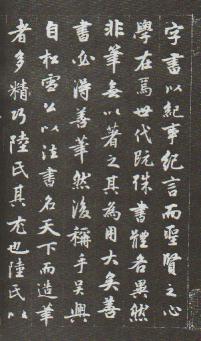 字書以紀事紀言而聖賢之心
學在焉世代阮殊書體各異然
非筆無以著之其為用大矣善
書必得善筆然後稱手吳興
自松雪公以法書名天下而造筆
者多精巧陸氏其尤也陸氏以